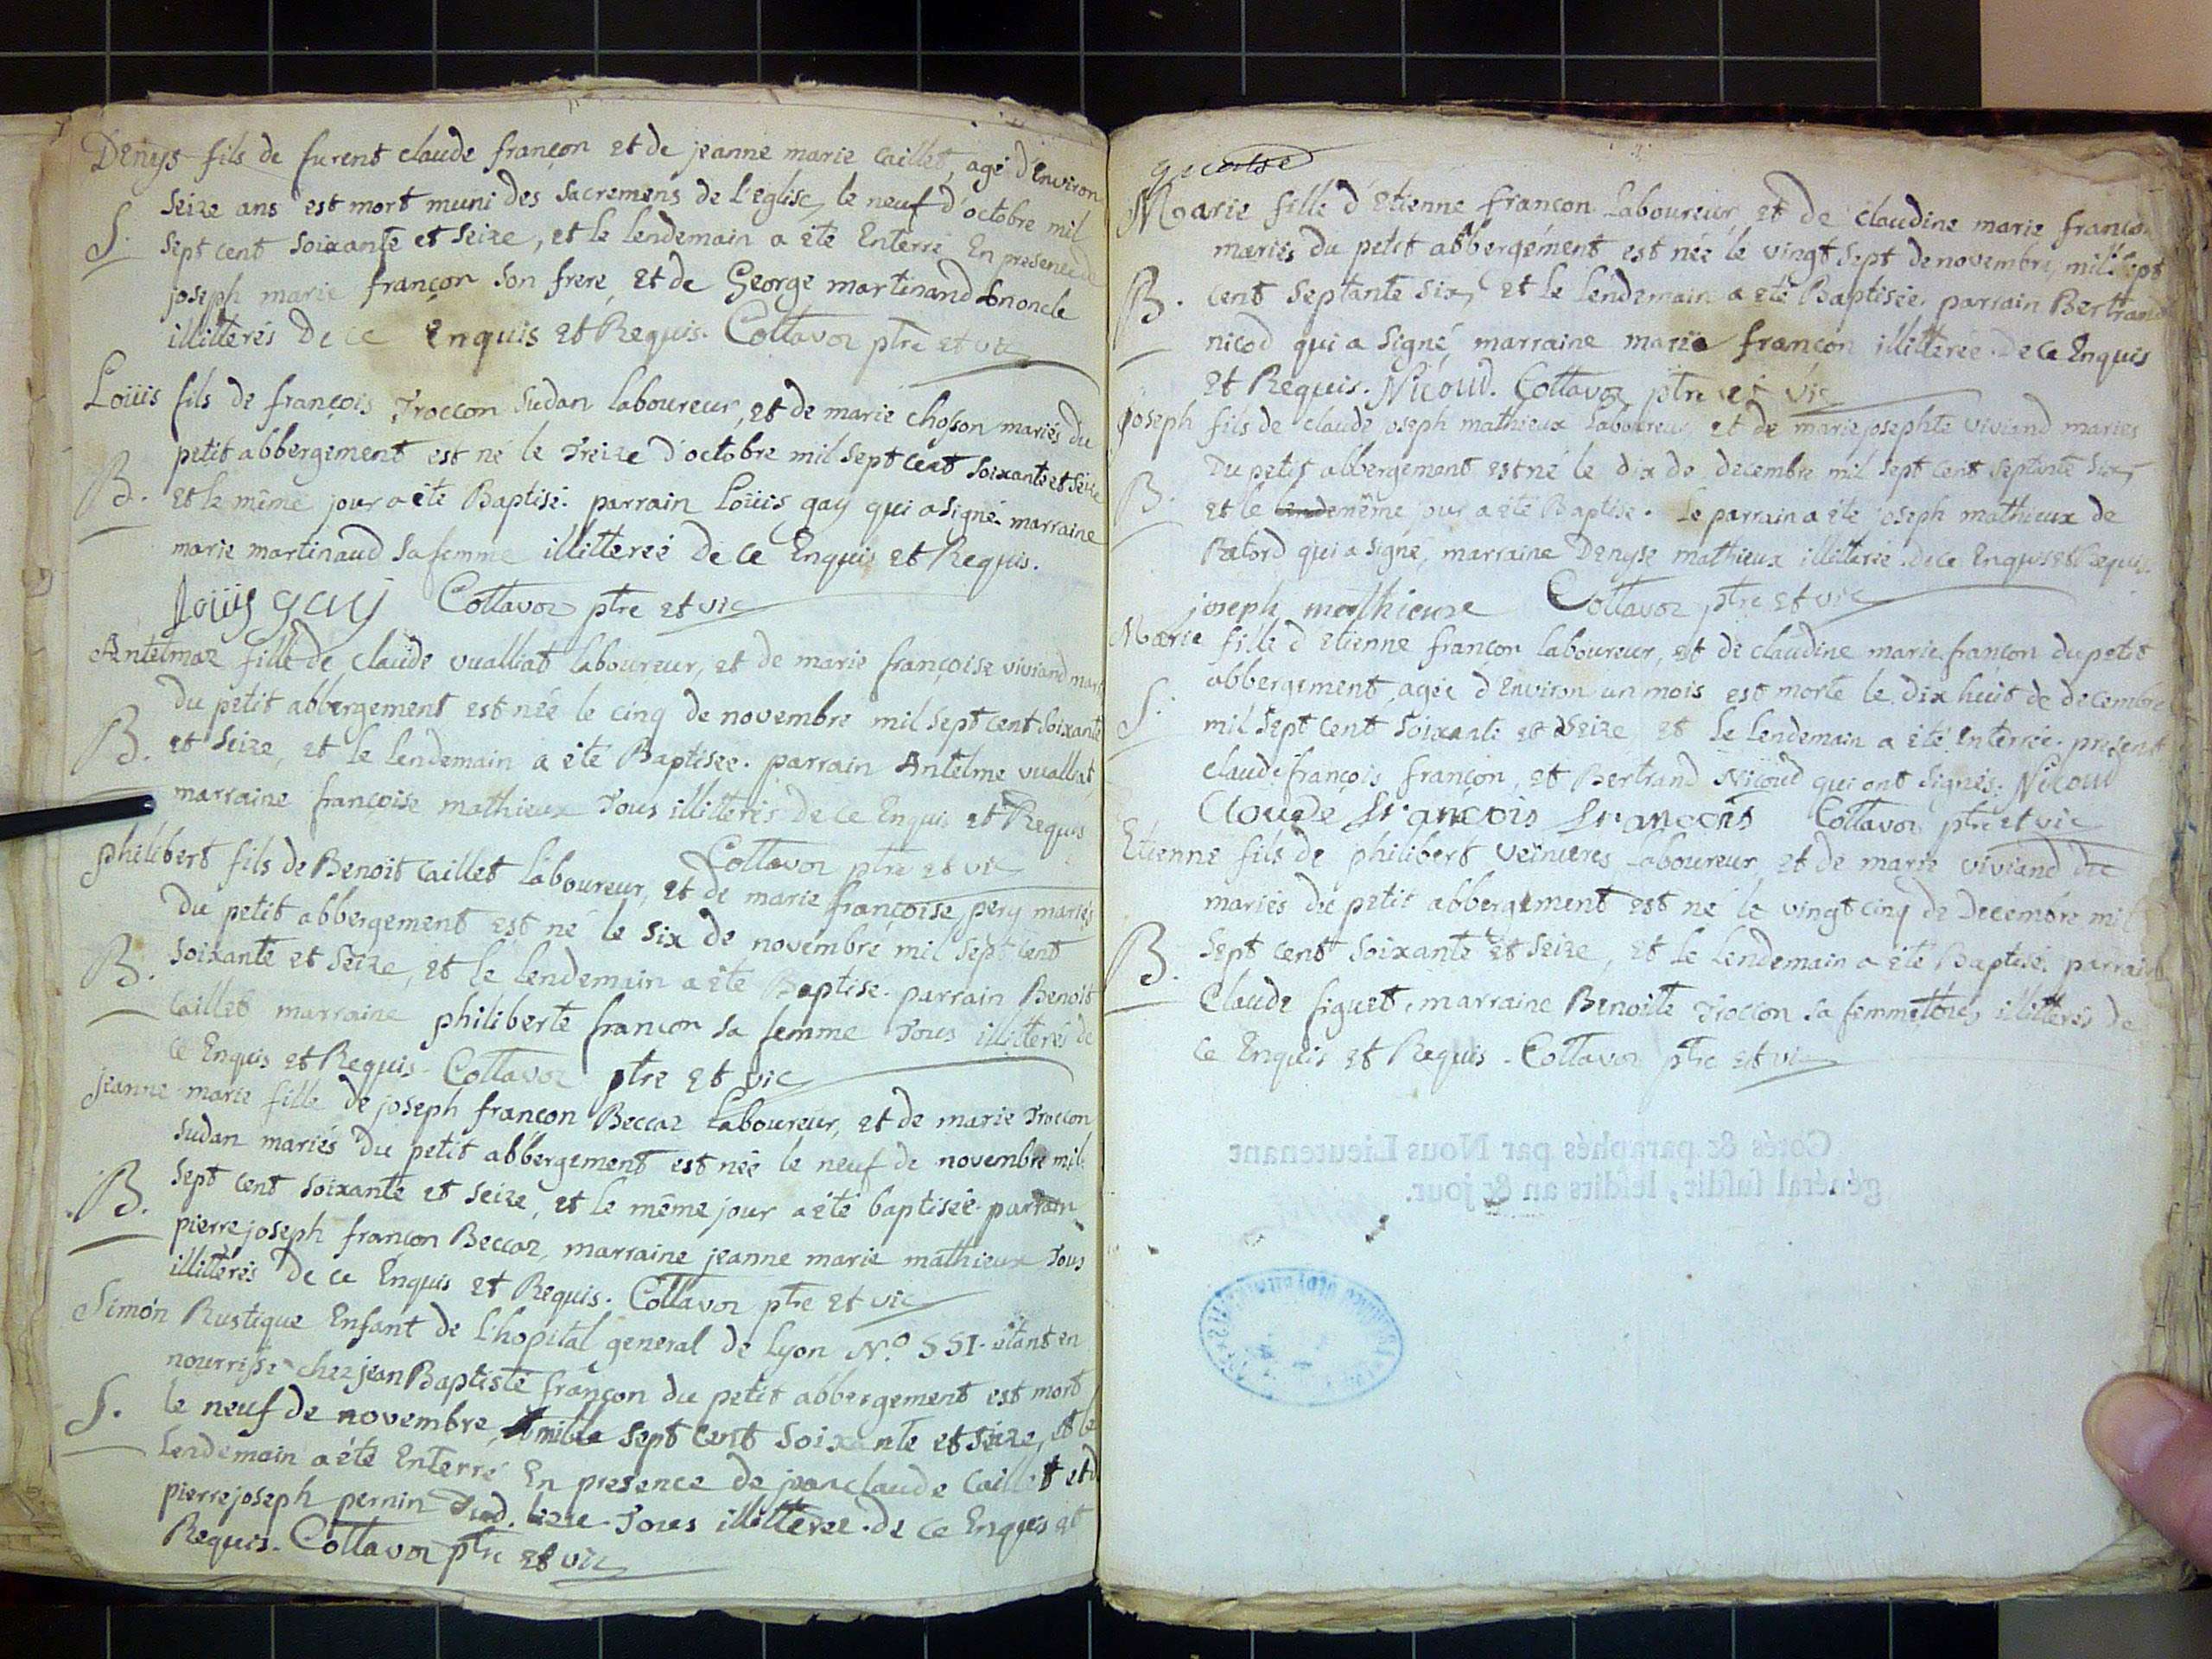 Denys fils de furent claude françon et de jeanne marie caillet, agé d'Environ
seize ans est mort muni des sacremens de l'eglise, le neuf d'octobre mil
S. sept cent soixante et seize, et le lendemain a été Enterré En presence de
joseph marie françon son frere, et de George martinand son oncle
illitterés De ce Enquis et Requis. Collavoz ptre et vic
Loüis fils de françois Troccon sudan laboureur, et de marie choson mariés du
petit abbergement est né le Treize d'octobre mil sept cent soixante et seize
B. et le même jour a été Baptisé. parrain Loüis gay qui a signé. marraine
marie martinaud sa femme illitterée de ce Enquis et Requis.
Loüis gay Collavoz ptre et vic
Antelmaz fille de claude vualliat laboureur, et de marie françoise viviand mariés
du petit abbergement est née le cinq de novembre mil sept cent soixante
B. et seize, et le lendemain a été Baptisee. parrain Antelme vualliat
marraine françoise mathieux Tous illitterés de ce Enquis et Requis
Collavoz ptre et vic
philibert fils de Benoit caillet laboureur, et de marie françoise pery mariés
Du petit abbergement est né le six de novembre mil sept cent
B. soixante et seize, et le lendemain a été Baptisé. parrain Benoit
caillet marraine philiberte françon sa femme Tous illitterés de
ce Enquis et Requis. Collavoz ptre et vic
jeanne marie fille de joseph françon Beccaz laboureur, et de marie Troccon
sudan mariés Du petit abbergement est née le neuf de novembre mil
B. sept cent soixante et seize, et le même jour a été baptisée. parrain
pierre joseph françon Beccaz, marraine jeanne marie mathieux Tous
illitterés de ce Enquis et Requis. Collavoz ptre et vic
Simon Rustique Enfant de l'hopital general de Lyon N.º 551. étant en
nourrisse chez jean Baptiste françon du petit abbergement est mort
S. le neuf de novembre, mille sept cent soixante et seize, et le
lendemain a été Enterré En presence de jean claude Caillet et de
pierre joseph pernin Tous illitterée. de ce Enquis et
Requis. Collavoz ptre et vic
Marie fille d'Etienne françon Laboureur, et de claudine marie françon
mariés du petit abbergement est née le vingt sept de novembre, mil sept
B. cent septante six, et le lendemain a été Baptisée. parrain Bertrand
nicod qui a signé, marraine marie françon illitterée. De ce Enquis
et Requis. Nicoud. Collavoz ptre et vic
joseph fils de claude joseph mathieux laboureur, et de marie josephte viviand mariés
Du petit abbergement est né le dix de decembre mil sept cent septante six,
B. et le même jour a été Baptisé. Le parrain a été joseph mathieux de
Retord qui a signé, marraine Denyse mathieux illitterée. De ce Enquis et Requis.
joseph mathieuxe Collavoz ptre et vic
Marie fille d'etienne françon laboureur, et de claudine marie françon du petit
abbergement, agée d'Environ un mois est morte le dix huit de decembre
S. mil sept cent soixante et seize et le lendemain a été Enterrée. present
claude françois françon, et Bertrand Nicoud qui ont signés. Nicoud
Cloude françois françois Collavoz ptre et vic
Etienne fils de philibert veïnieres laboureur et de marie viviand du
mariés du petit abbergement est né le vingt cinq de Decembre mil
B. sept cent soixante et seize, et le lendemain a été Baptisé. parrain
Claude figuet, marraine Benoite Troccon sa femme tous illitterés de
ce Enquis et Requis. Collavoz ptre et vic
Cotés & paraphés par Nous Lieutenant
général susdit, lesdits an & jour.